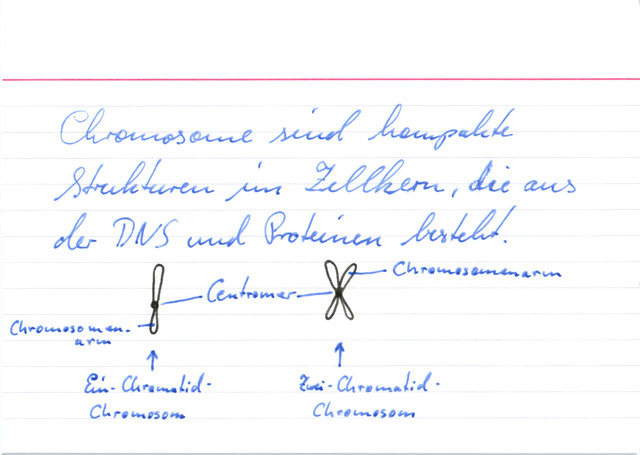 Chromosome sind kompakte
Strukturen im Zellkern, die aus
der DNS und Proteinen besteht.
Chromosomenarm
Centromer
Chromosomen-
arm
Ein-Chromatid-
Chromosom
Zwei-Chromatid-
Chromosom